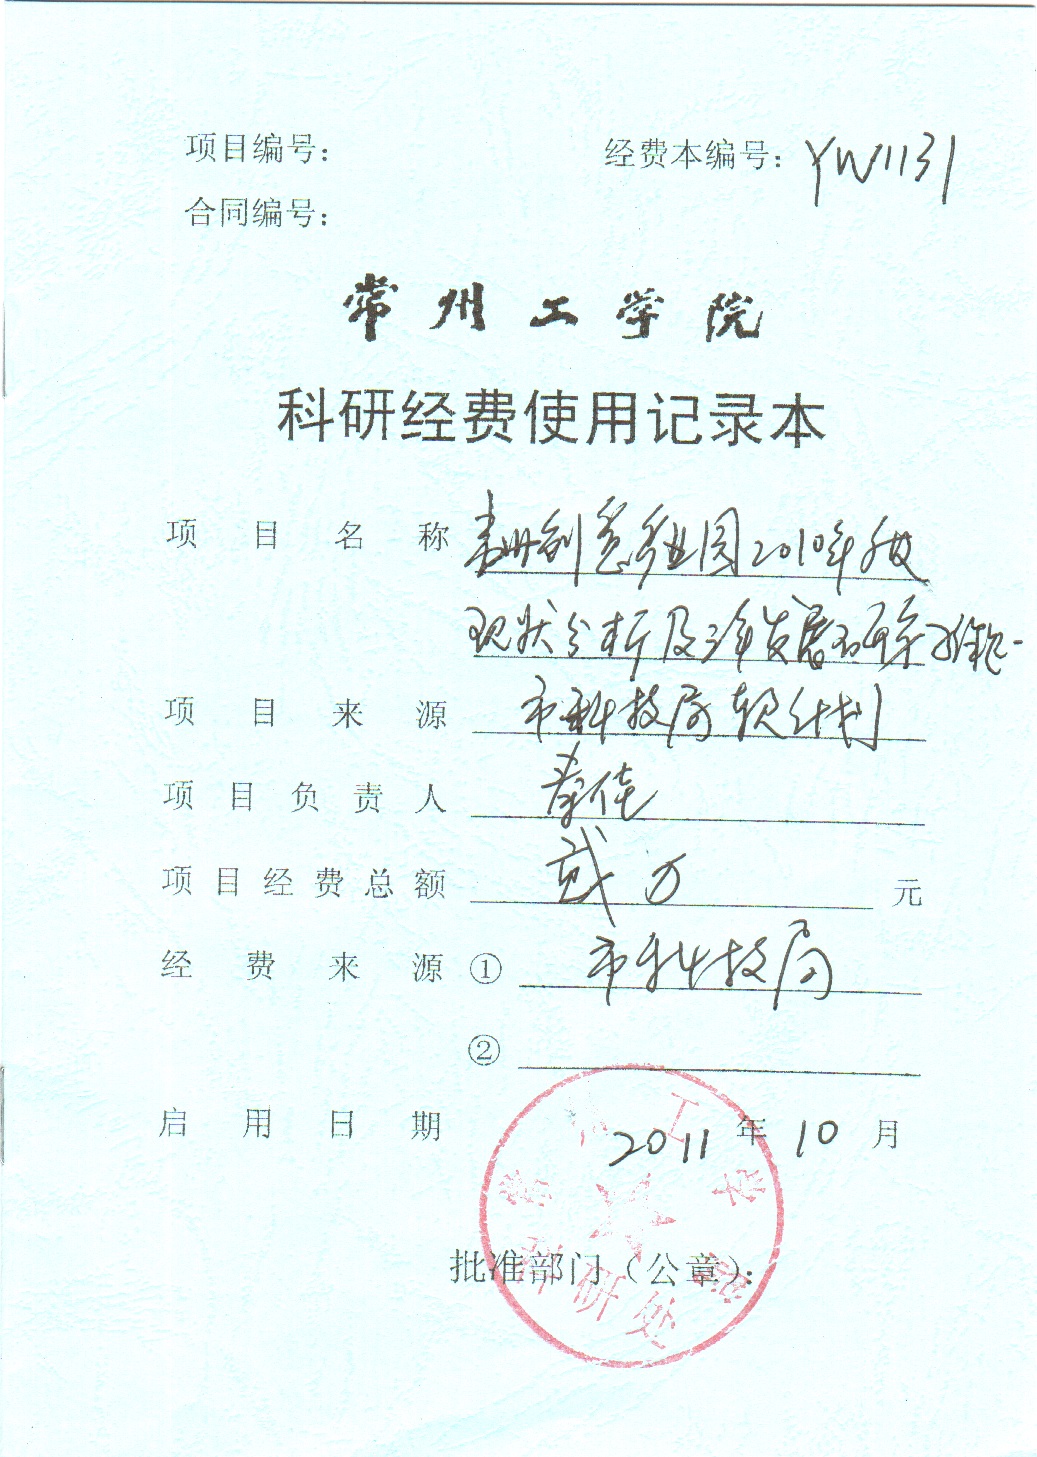 项目编号：
经费本编号：YW1131
合同编号：
常州工学院
科研经费使用记录本
项目名称 创意产业园2010年
现状分析及三年发展研究
项目来源 市科技局软计划
项目负责人 秦佳
项目经费总额 贰万 元
经费来源① 市科技局
②
启用日期 2011年10月
批准部门（公章）：
常州工学院
科研处